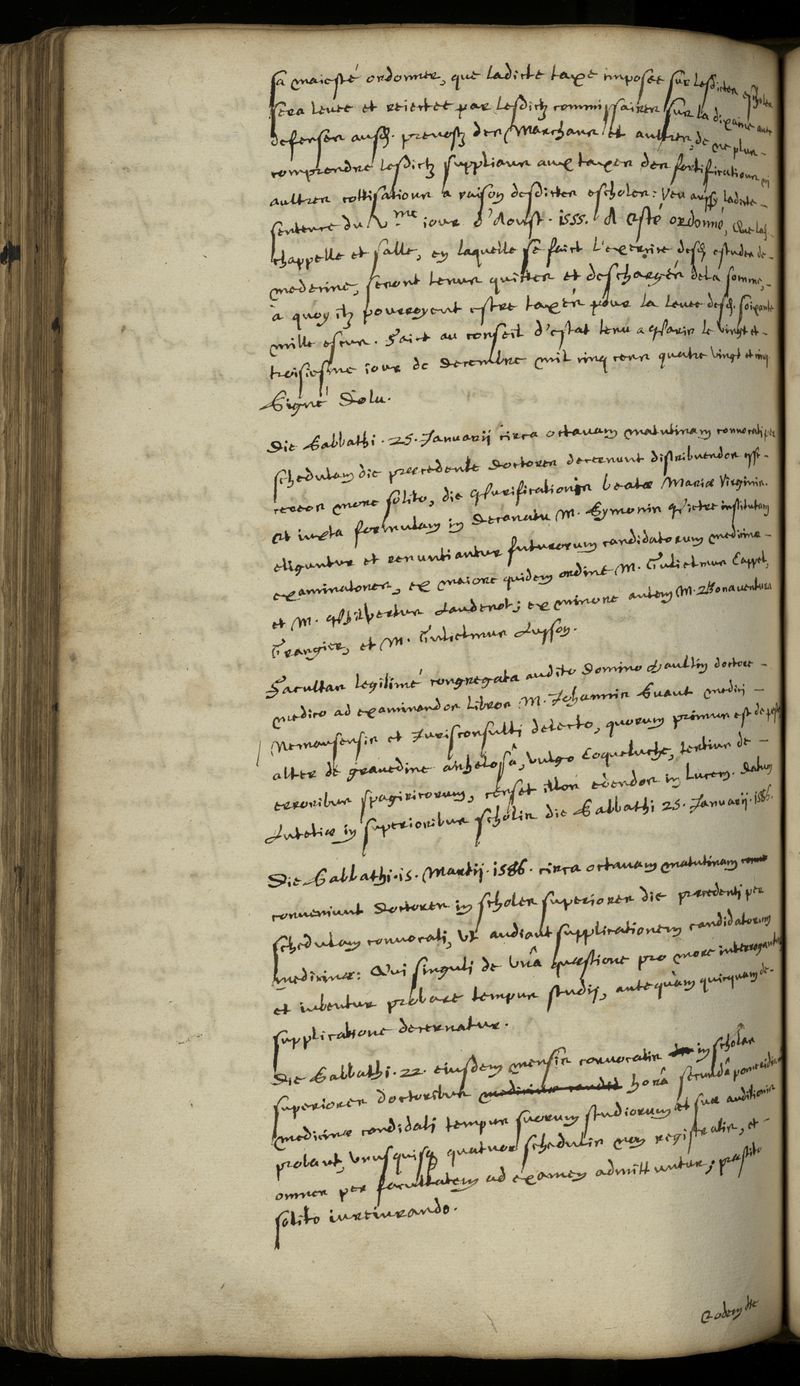 sa maiesté ordonner, que ladicte taxe imposee sur lesdictes escholes
sera levee et reiectee par lesdictz commissaires sur la
defenses ausd. prevostz des Marchans et aultres, de ne plus
comprendre lesdictz supplians aux taxes des fortifications
aultres cottisations a raison desdictes escholes: Veu aussy ladicte
sentence du V.me iour d'Aoust. 1555. A esté ordonné, Que las.
chappelle et salle, en laquelle se faict l'exercice desd. estudes de
medecine, seront tenus quittes et deschargés dela somme,
à quoy ilz pourroyent estre taxés pour la levee desd. soixante
mille escus. Faict au conseil d'estat tenu a Paris le vingt et
troisiesme iour de Decembre mil cinq cens quatre vingt et cinq
Signé Dolu.
Die Sabbathi .25. Januarij circa octavam matutinam convocati per
schedulam die precedente Doctores decernunt distribuendos esse
more solito, die Purificationis beatæ Mariæ Virginis.
et iuxta formulam in Decanatu M. Symonis Pietre institutam
eliguntur et renuntiantur futurorum candidatorum medicinæ
examinatores, ex maiore quidem ordine M. Gulielmus Cappel,
et M. Philbertus Laudenot; ex minore autem M. Bonaventura
Grangier, et M. Gulielmus Lusson.
Facultas legitimé congregata audito Domino Paullin doctore
medico ad examinandos libros M. Johannis Suaut medici
Nemausensis et Jurisconsulti delecto, quorum primus est de peste
alter de gravedine anhelosâ, vulgo Coqueluche, tertius de
erroribus spagiricorum, censet illos edendos in lucem. Datum
Lutetiæ in superioribus scholis die Sabbathi 25. Januarij. 1586.
Die Sabbathi .15. Martij. 1586. circa octavam matutinam
conveniunt Doctores in scholas superiores die præcedenti per
schedulam convocati, ut audiant supplicationem candidatorum
medicinæ: Qui singuli de unâ quæstione pro more interrogantur
et iubentur probare tempus studij, antequam quicquam de
supplicatione decernatur.
Die Sabbathi .22. eiusdem mensis convocatis in scholas
superiores doctoribus horâ secundâ pomeridiana
medicinæ candidati tempus suorum studiorum et suæ auditionis
probant, unusquisq quatuor schedulis registratis, et
omnes per facultatem ad examen admittuntur, præstito
solito iureiurando.
Eodem die